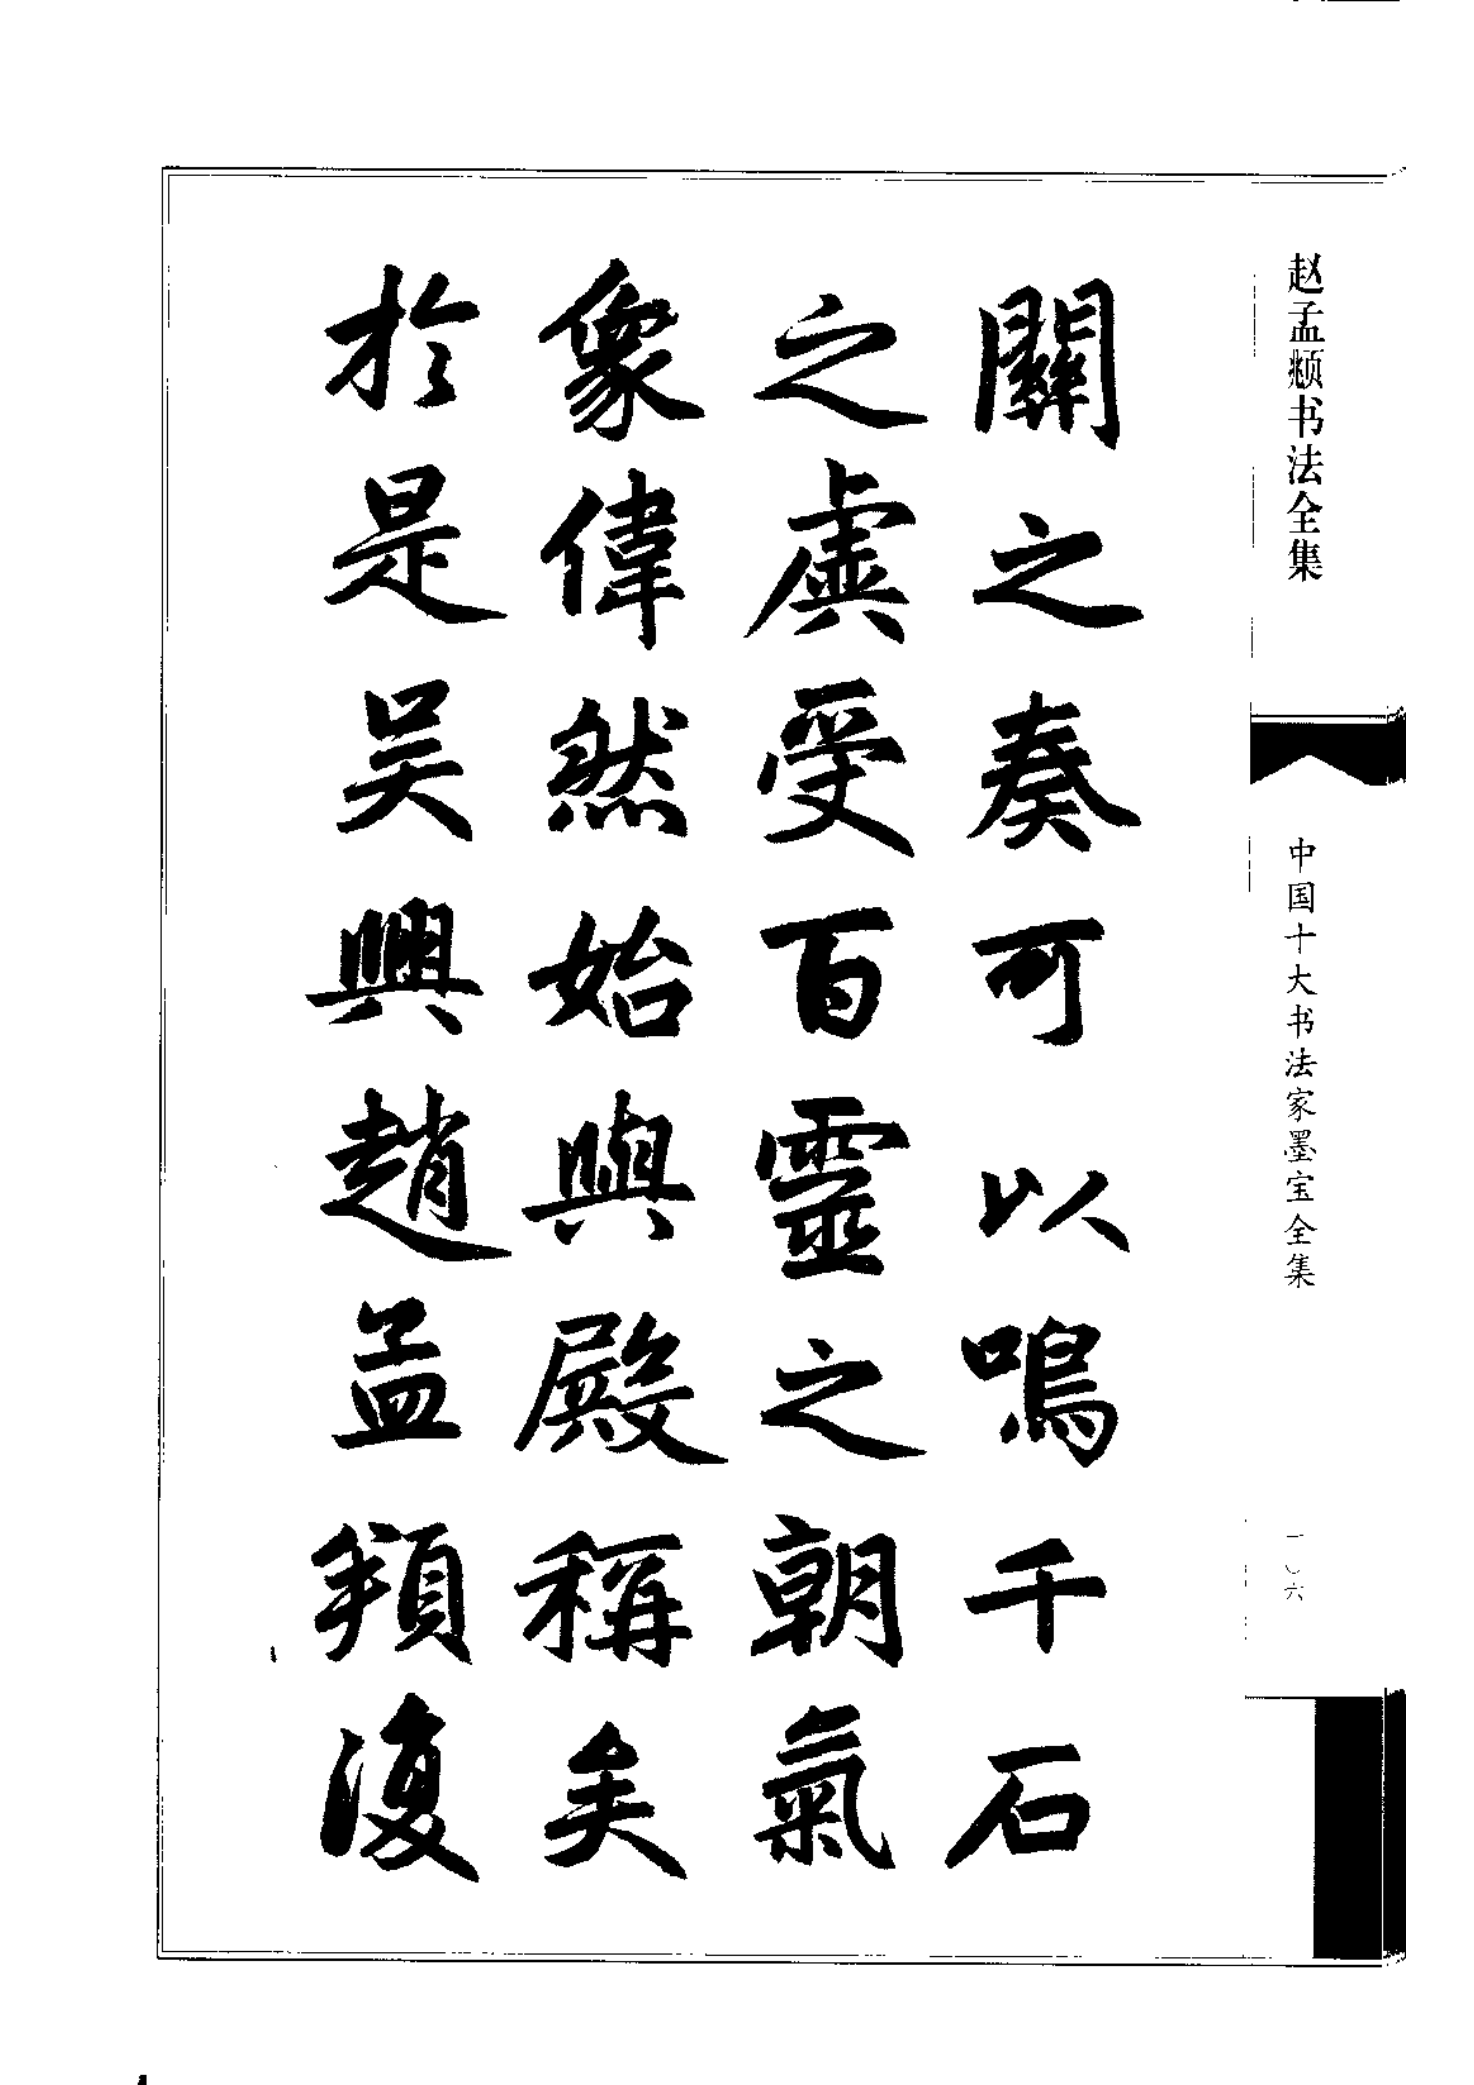 赵孟頫书法全集
中国十大书法家墨宝全集
一〇六
關之奏可以鳴千石
之虡受百靈之朝氣
象偉然始與殿稱矣
於是吴興趙孟頫復